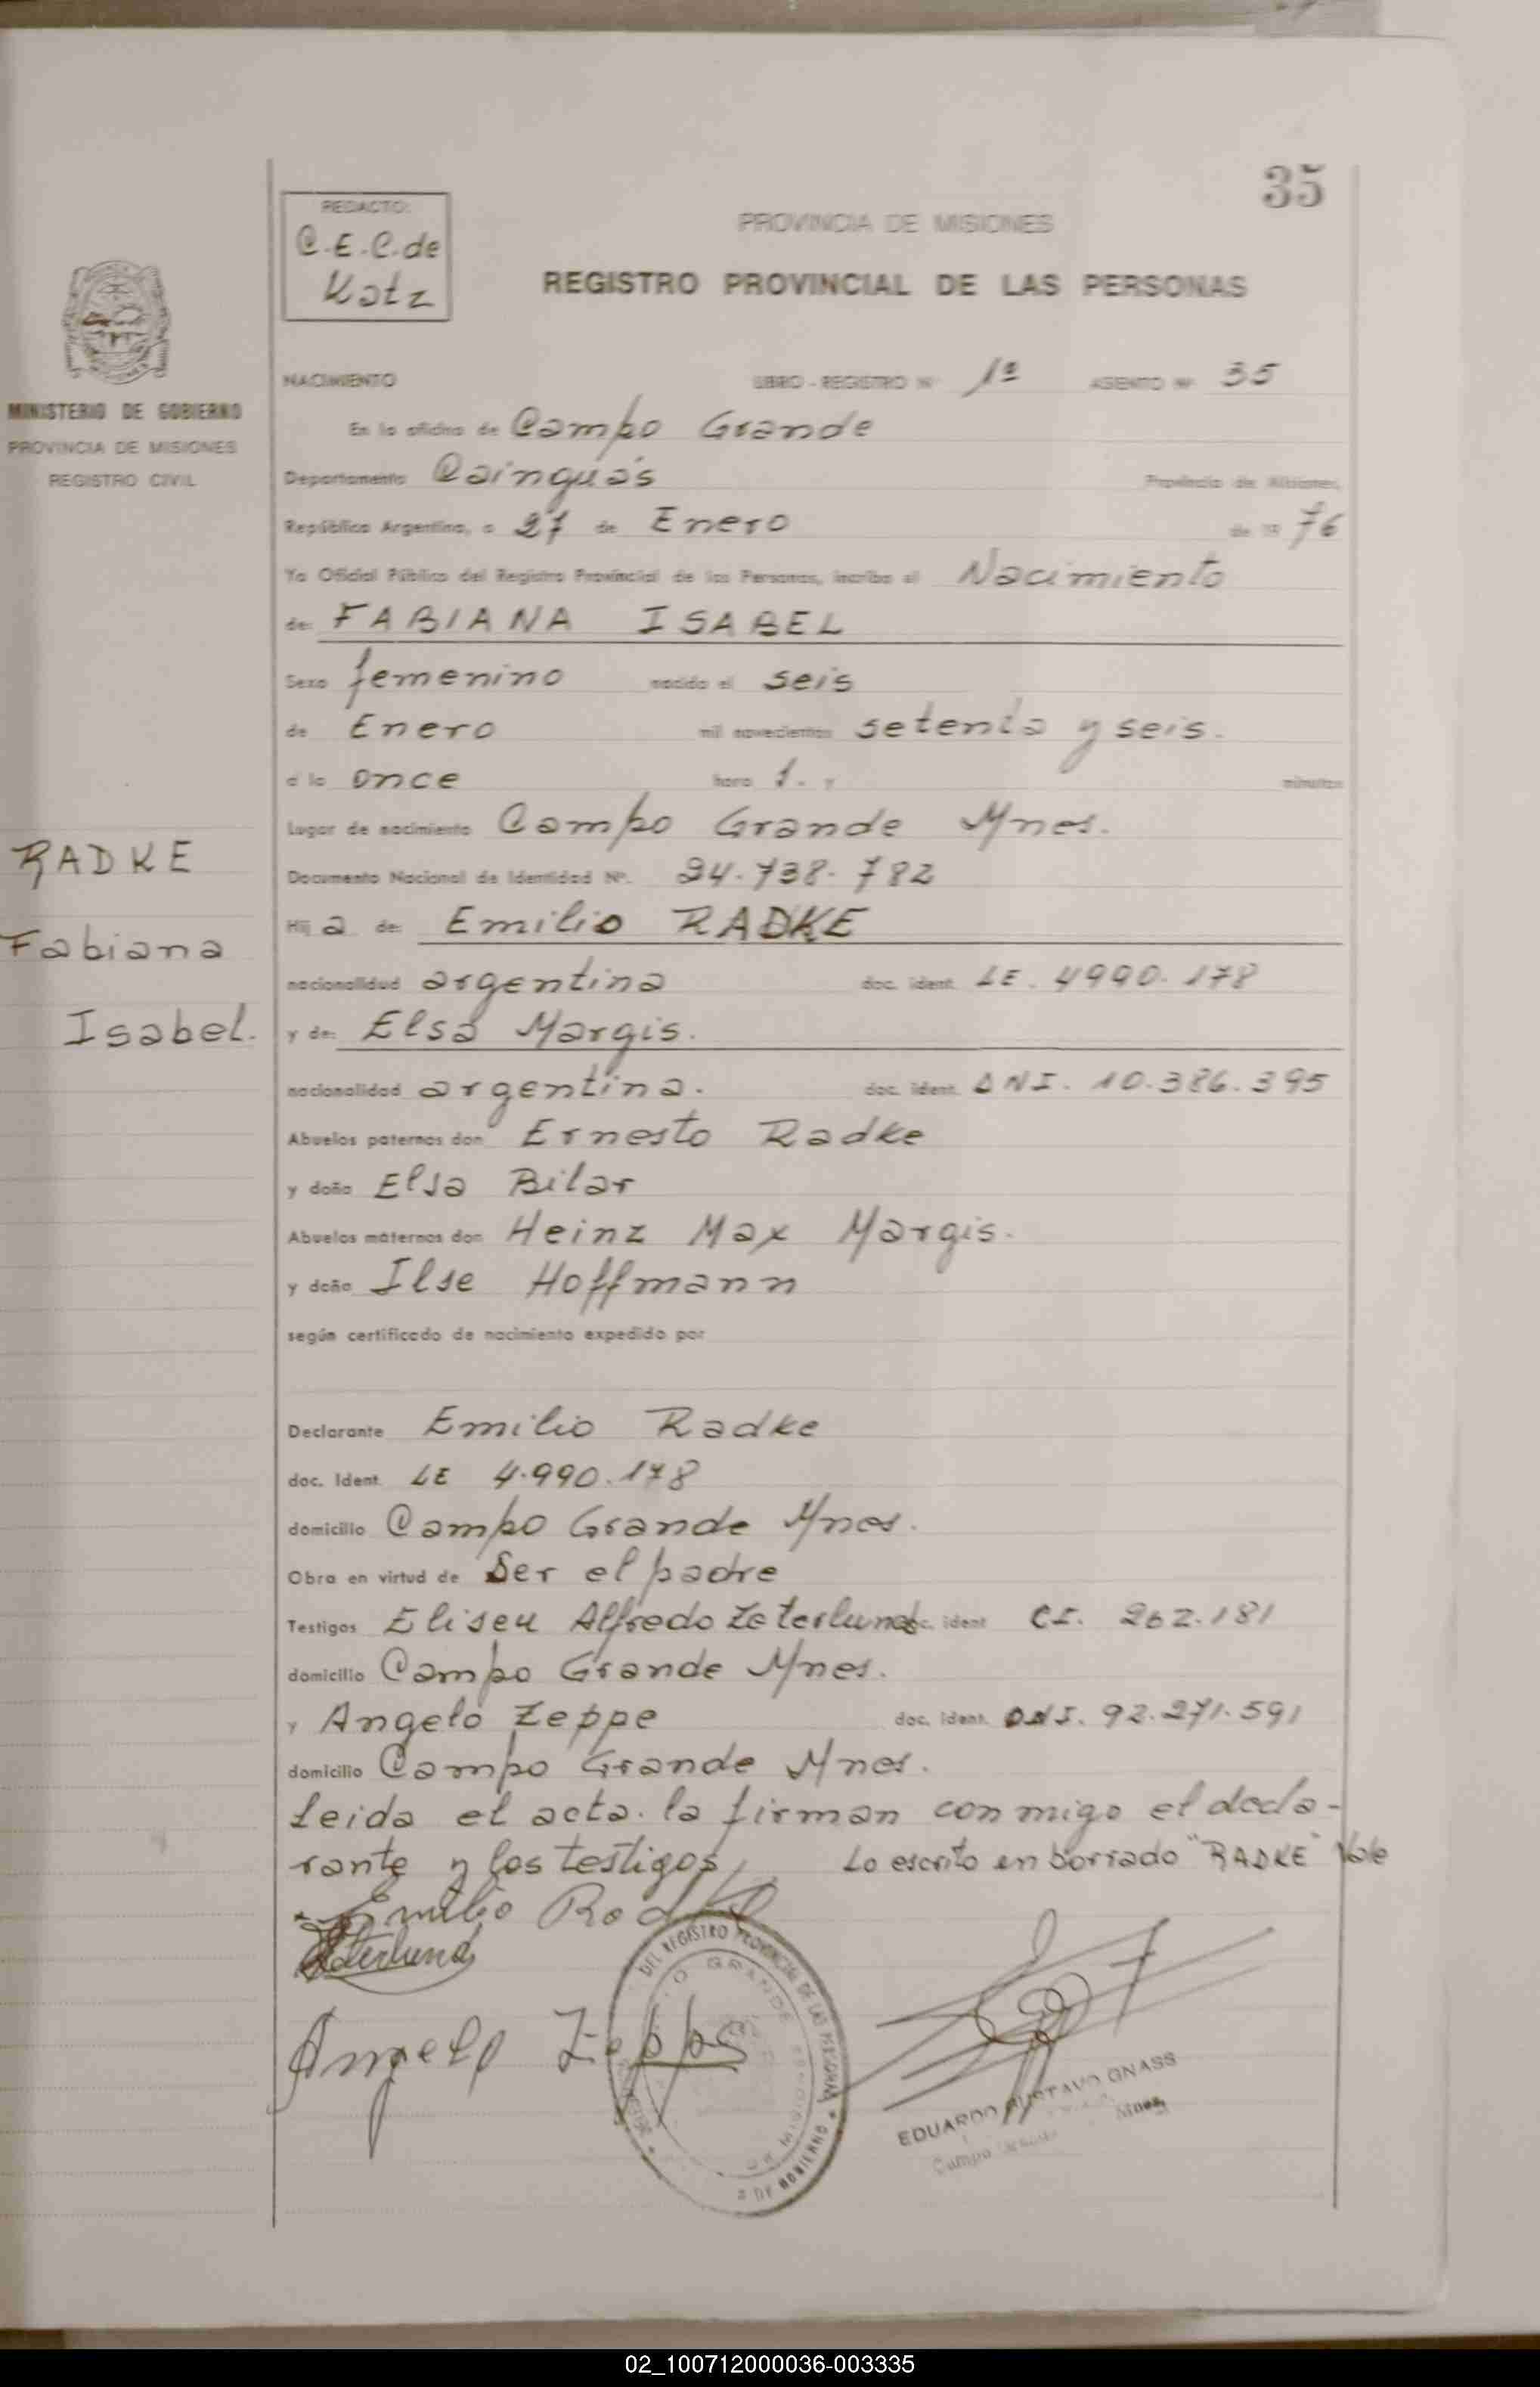 35
REDACTO:
C.E.C. de
Katz
PROVINCIA DE MISIONES
REGISTRO PROVINCIAL DE LAS PERSONAS
MINISTERIO DE GOBIERNO
PROVINCIA DE MISIONES
REGISTRO CIVIL
NACIMIENTO LIBRO - REGISTRO Nº 1º ASIENTO Nº 35
En la oficina de Campo Grande
Departamento Cainguás Provincia de Misiones,
República Argentina, a 27 de Enero de 19 76
Yo Oficial Público del Registro Provincial de las Personas, inscribo el Nacimiento
de: FABIANA ISABEL
Sexo femenino nacido el seis
de Enero mil novecientos setenta y seis.
a la once hora 1. y minutos
Lugar de nacimiento Campo Grande Mnes.
Documento Nacional de Identidad Nº. 24.738.782
Hij a de: Emilio RADKE
nacionalidad argentina doc. ident. LE. 4990.178
y de: Elsa Margis.
nacionalidad argentina. doc. ident. DNI. 10.386.395
Abuelos paternos don Ernesto Radke
y doña Elsa Bilar
Abuelos maternos don Heinz Max Margis.
y doña Ilse Hoffmann
según certificado de nacimiento expedido por
RADKE
Fabiana
Isabel.
Declarante Emilio Radke
doc. Ident. LE 4.990.178
domicilio Campo Grande Mnes.
Obra en virtud de Ser el padre
Testigos Eliseu Alfredo Zeterlund doc. ident CI. 262.181
domicilio Campo Grande Mnes.
y Angelo Zeppe doc. ident. DNI. 92.271.591
domicilio Campo Grande Mnes.
Leida el acta. la firman conmigo el decla-
rante y los testigos, Lo escrito en borrado "RADKE" Vale
Emilio Radke
Zeterlund
Angelo Zeppe
DEL REGISTRO PROVINCIAL DE LAS PERSONAS
GRANDE
DE GOBIERNO
EDUARDO GUSTAVO GNASS
Campo Grande Mnes.
02_100712000036-003335